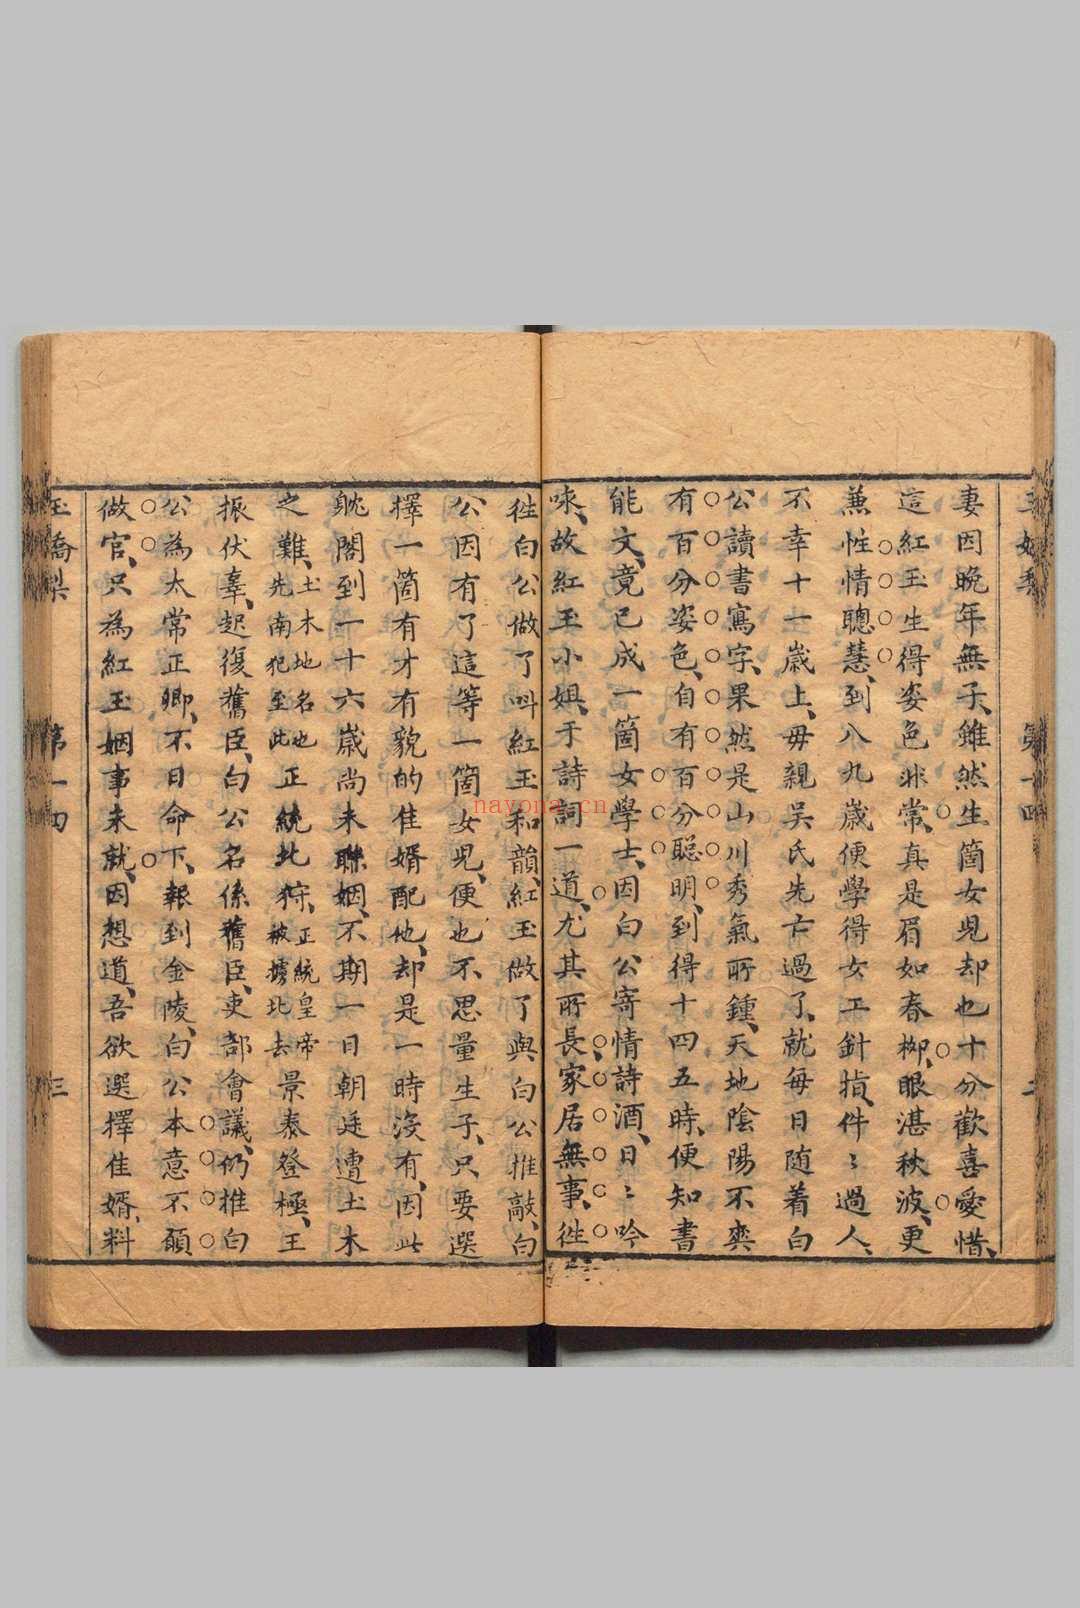 妻因晚年無子、雖然生箇女児却也十分歡喜愛惜、
這紅玉生得姿色非常、真是眉如春栁、眼湛秋波、更
兼性情聰慧、到八九歳便學得女工針㨖、件〻過人、
不幸十一歳上、毋親吳氏先亡過了、就每日随着白
公讀書寫字、果然是山川秀氣所鍾、天地隂陽不爽
有百分姿色、自有百分聪明、到得十四五時、便知書
能文、竟已成一箇女學士、因白公寄情詩酒、日〻吟
咏、故紅玉小姐、于詩詞一道、尤其所長、家居無事、徃
徃白公做了叫紅玉和韻、紅玉做了與白公推敲、白
公因有了這等一箇女児、便也不思量生子、只要選
擇一箇有才有貌的佳婿配他、却是一時沒有、因此
躭閣到一十六歳尚未聯姻、不期一日朝廷遭土木
之難、土木地名也先南犯至此正統北狩、正統皇帝被擄北去景泰登極、王
振伏辜、起復舊臣、白公名係舊臣、吏部會議、仍推白
公為太常正卿、不日命下、報到金陵、白公本意不願
做官、只為紅玉姻事未就、因想道、吾欲選擇佳婿、料
玉嬌梨 第一回 三
nayona.cn